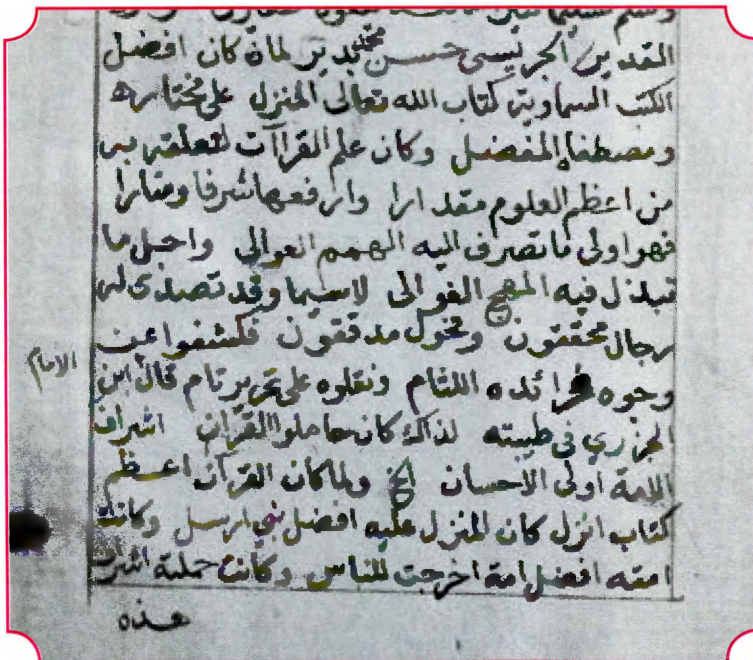 القدير الجريسي حسن محمد بدير لما كان افضل
الكتب السماوية كتاب الله تعالى المنزل على مختاره
ومصطفاه المفضل وكان علم القراآت لتعلقه به
من اعظم العلوم مقدارا وارفعها شرفا ومنارا
فهو اولى ما تصرف اليه الهمم العوالى واجل ما
تبذل فيه المهج الغوالى لاسيما وقد تصدى له
رجال محققون وفحول مدققون فكشفوا عن
وجوه فرائده اللثام ونقلوه على تحرير تام قال ابن
الامام
الجزري فى طيبته لذاك كان حاملوا القرآن اشراف
الامة اولى الاحسان الخ ولما كان القرآن اعظم
كتاب انزل كان المنزل عليه افضل نبي ارسل وكانت
امته افضل امة اخرجت للناس وكانت حملته اشرف
هذه